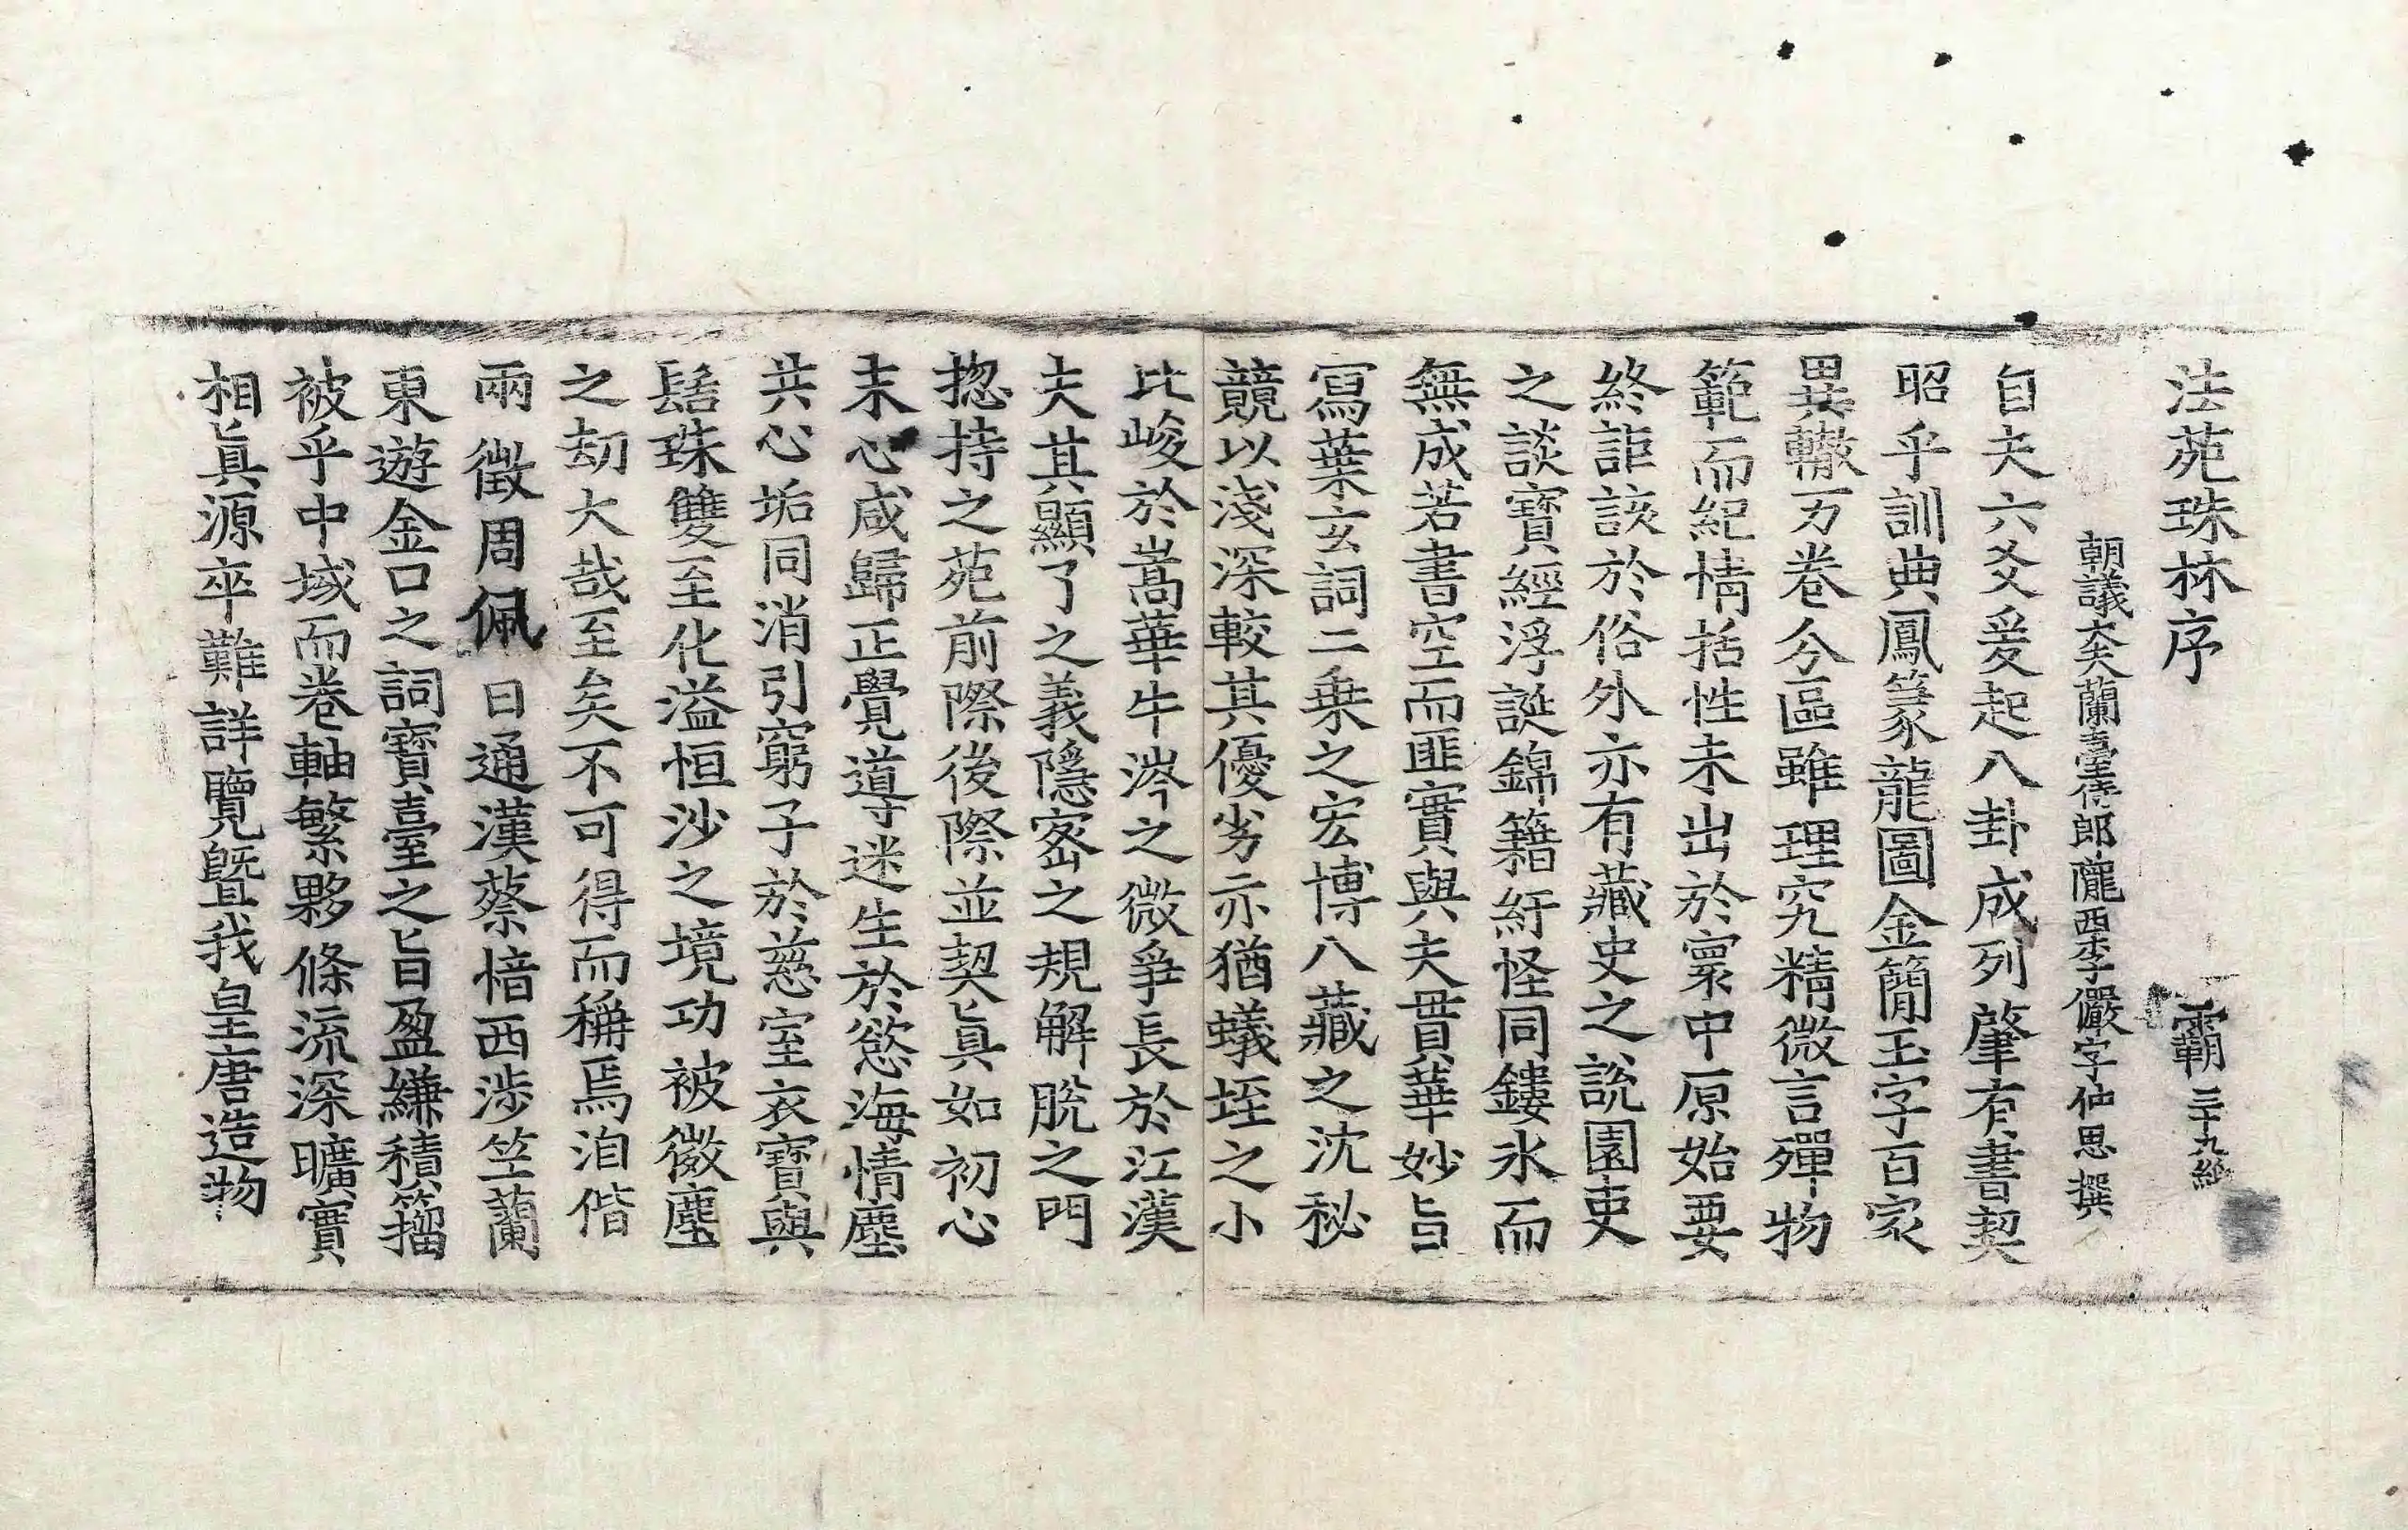 法苑珠林序　霸　三十九紙
朝議大夫蘭臺侍郎隴西李儼字仲思撰
自夫六爻爰起八卦成列肇有書契
昭乎訓典鳳篆龍圖金簡玉字百家
異轍万卷分區雖理究精微言殫物
範而紀情括性未出於寰中原始要
終詎該於俗外亦有藏史之說園吏
之談寶經浮誕錦籍紆怪同鏤氷而
無成若書空而匪實與夫貫華妙旨
寫葉玄詞二乗之宏博八藏之沈秘
競以淺深較其優劣亦猶蟻垤之小
比峻於嵩華牛涔之微爭長於江漢
夫其顯了之義隱宻之規解脫之門
揔持之苑前際後際並契眞如初心
末心咸歸正覺導迷生於慾海情塵
共心垢同消引窮子於慈室衣寶與
髻珠雙至化溢恒沙之境功被微塵
之劫大哉至矣不可得而稱焉洎偕
兩徵周佩日通漢蔡愔西涉竺蘭
東遊金口之詞寶臺之旨盈縑積籀
被乎中域而卷軸繁夥條流深曠實
相眞源卒難詳覽曁我皇唐造物